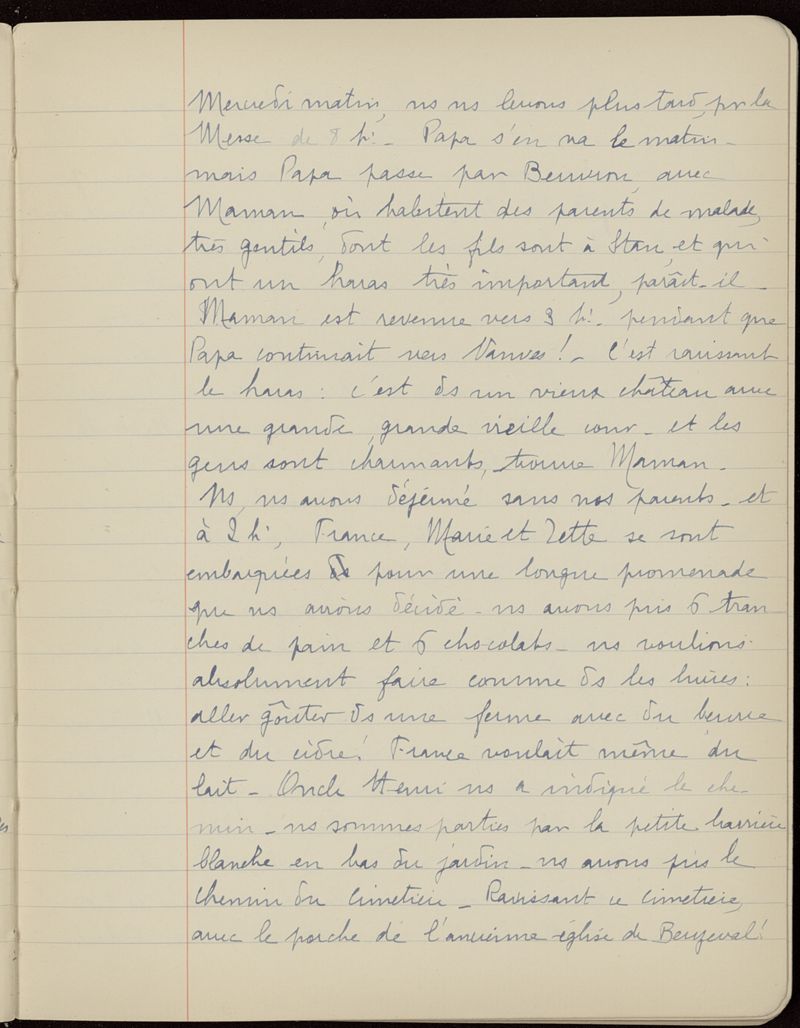 Mercredi matin, ns ns levons plus tard, pr la
Messe de 8 h. - Papa s'en va le matin -
mais Papa passe par Beuvron, avec
Maman, où habitent des parents de malade,
très gentils, dont les fils sont à Stan, et qui
ont un haras très important, paraît-il -
Maman est revenue vers 3 h. - pendant que
Papa continuait vers Vanves! - C'est ravissant
le haras : c'est ds un vieux château avec
une grande, grande vieille cour - et les
gens sont charmants, trouve Maman -
Ns, ns avons déjeuné sans nos parents - et
à 2 h, France, Marie et Zette se sont
embarquées pour une longue promenade
que ns avions décidé - ns avons pris 6 tran
ches de pain et 6 chocolats - ns voulions
absolument faire comme ds les livres :
aller goûter ds une ferme avec du beurre
et du cidre! France voulait même du
lait - Oncle Henri ns a indiqué le che-
min - ns sommes parties par la petite barrière
blanche en bas du jardin - ns avons pris le
chemin du cimetière - Ravissant ce cimetière,
avec le porche de l'ancienne église de Beuzeval!